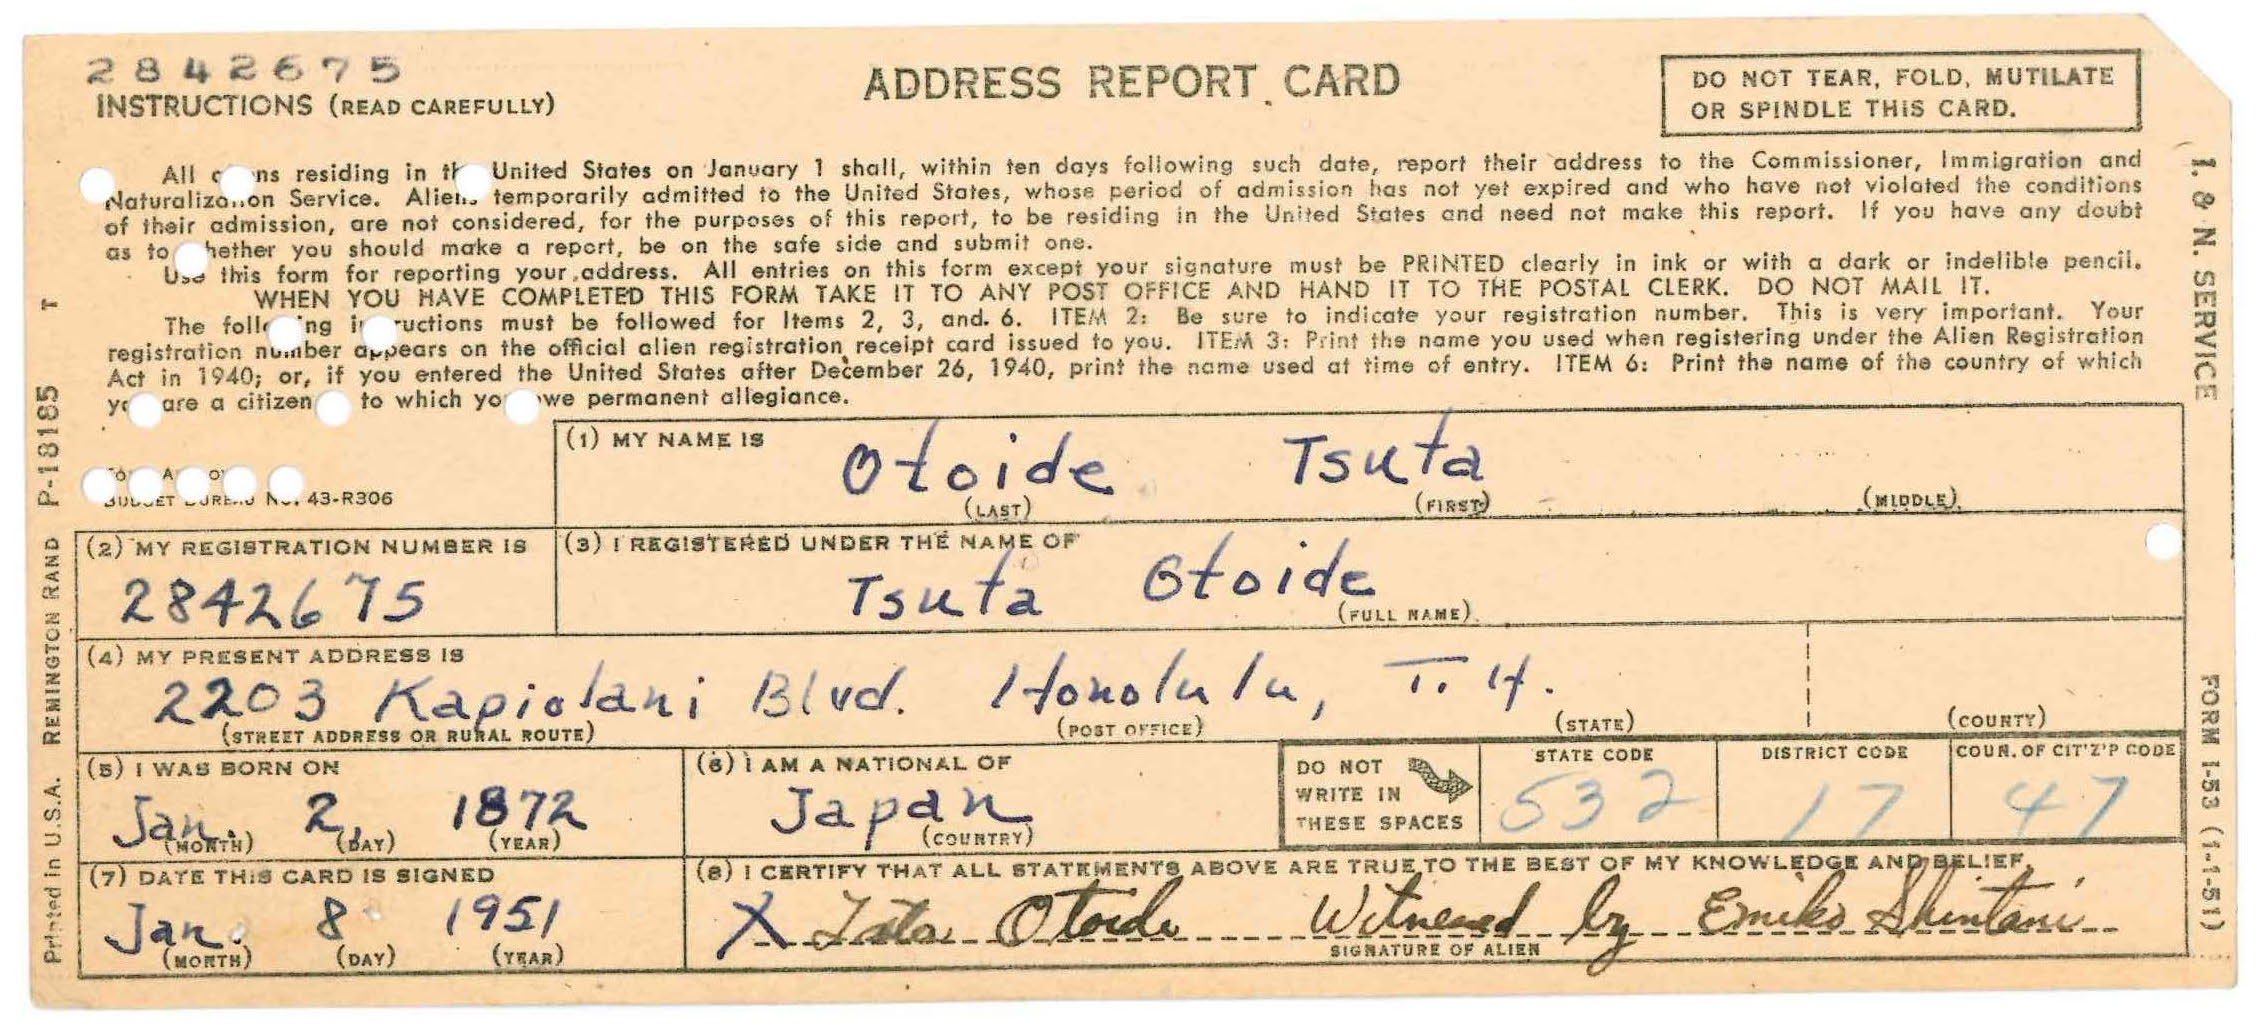 2842675
INSTRUCTIONS (READ CAREFULLY)
ADDRESS REPORT CARD
DO NOT TEAR, FOLD, MUTILATE
OR SPINDLE THIS CARD.
All ns residing in United States on January 1 shall, within ten days following such date, report their address to the Commissioner, Immigration and
Naturalization Service. Aliens temporarily admitted to the United States, whose period of admission has not yet expired and who have not violated the conditions
of their admission, are not considered, for the purposes of this report, to be residing in the United States and need not make this report. If you have any doubt
as to hether you should make a report, be on the safe side and submit one.
Use this form for reporting your address. All entries on this form except your signature must be PRINTED clearly in ink or with a dark or indelible pencil.
WHEN YOU HAVE COMPLETED THIS FORM TAKE IT TO ANY POST OFFICE AND HAND IT TO THE POSTAL CLERK. DO NOT MAIL IT.
The foll ng in ructions must be followed for Items 2, 3, and 6. ITEM 2: Be sure to indicate your registration number. This is very important. Your
registration number appears on the official alien registration receipt card issued to you. ITEM 3: Print the name you used when registering under the Alien Registration
Act in 1940; or, if you entered the United States after December 26, 1940, print the name used at time of entry. ITEM 6: Print the name of the country of which
are a citizen to which yo we permanent allegiance.
BUDGET BUREAU No. 43-R306
(1) MY NAME IS
Otoide Tsuta
(LAST) (FIRST) (MIDDLE)
(2) MY REGISTRATION NUMBER IS
2842675
(3) I REGISTERED UNDER THE NAME OF
Tsuta Otoide
(FULL NAME)
(4) MY PRESENT ADDRESS IS
2203 Kapiolani Blvd. Honolulu, T.H.
(STREET ADDRESS OR RURAL ROUTE) (POST OFFICE) (STATE) (COUNTY)
(5) I WAS BORN ON
Jan. 2 1872
(MONTH) (DAY) (YEAR)
(6) I AM A NATIONAL OF
Japan
(COUNTRY)
DO NOT
WRITE IN
THESE SPACES
STATE CODE
532
DISTRICT CODE
17
COUN. OF CIT'Z'P CODE
47
(7) DATE THIS CARD IS SIGNED
Jan. 8 1951
(MONTH) (DAY) (YEAR)
(8) I CERTIFY THAT ALL STATEMENTS ABOVE ARE TRUE TO THE BEST OF MY KNOWLEDGE AND BELIEF.
X Otoide Witnessed by Emiko Shintani
SIGNATURE OF ALIEN
Printed in U.S.A. REMINGTON RAND P-18185 T
I. & N. SERVICE
FORM I-53 (1-1-51)